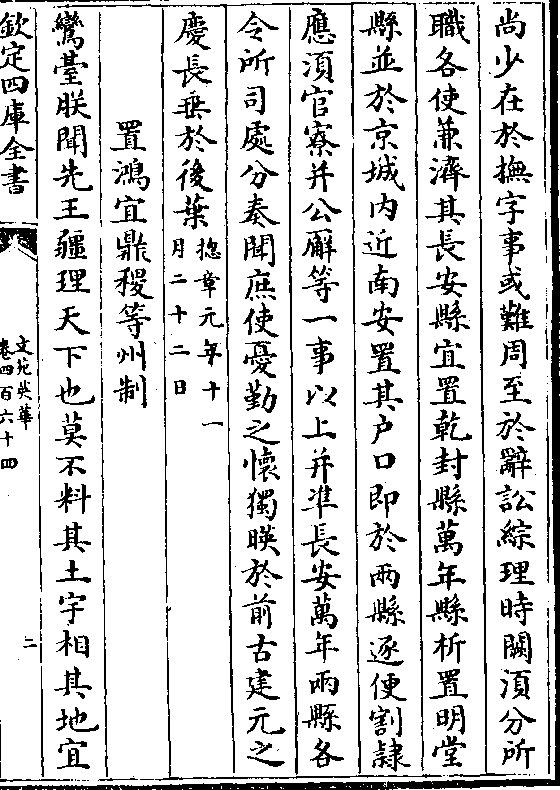 尚少在於撫字事或難周至於辭訟綜理時闕湏分所
職各使兼濟其長安縣宜置乾封縣萬年縣析置明堂
縣並於京城内近南安置其户口即於兩縣逐便割隷
應湏官寮并公廨等一事以上并准長安萬年兩縣各
令所司處分奏聞庶使憂勤之懷獨暎於前古建元之
慶長垂於後葉
揔章元年十一
月二十二日
置鴻宜鼎稷等州制
鸞臺朕聞先王疆理天下也莫不料其土宇相其地宜
欽定四庫全書
文苑英華
卷四百六十四
二